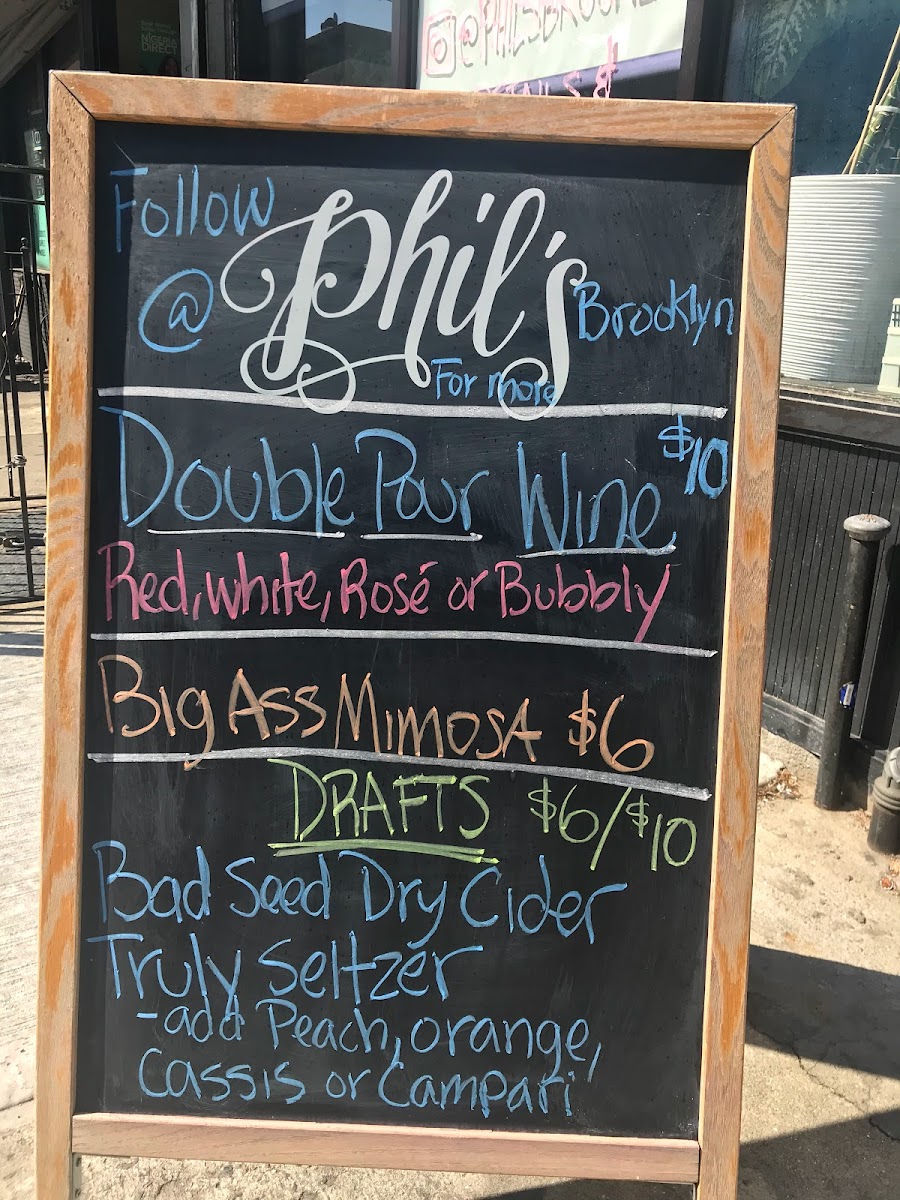 NIGERIA
DIRECT
@PHILSBROOKL
Follow
@ Phil's Brooklyn
For more
Double Pour Wine $10
Red, White, Rosé or Bubbly
Big Ass Mimosa $6
DRAFTS $6/$10
Bad Seed Dry Cider
Truly Seltzer
- add Peach, orange,
Cassis or Campari